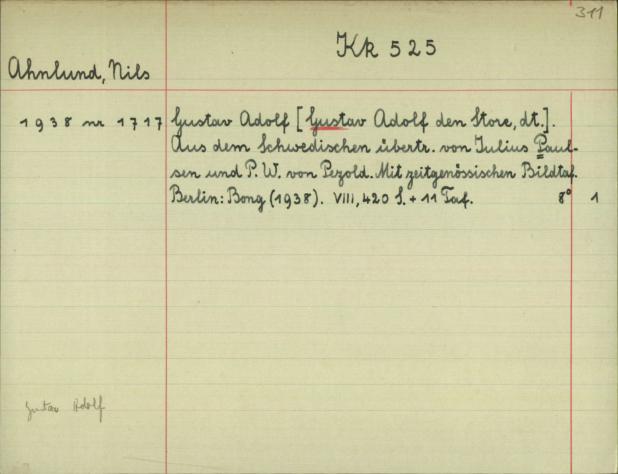 311
Kk 525
Ahnlund, Nils
1938 nr 1717 Gustav Adolf [Gustav Adolf den Store, dt.].
Aus dem Schwedischen übertr. von Julius Paul-
sen und P. W. von Pezold. Mit zeitgenössischen Bildtaf.
Berlin: Bong (1938). VIII, 420 S. + 11 Taf. 8° 1
Gustav Adolf